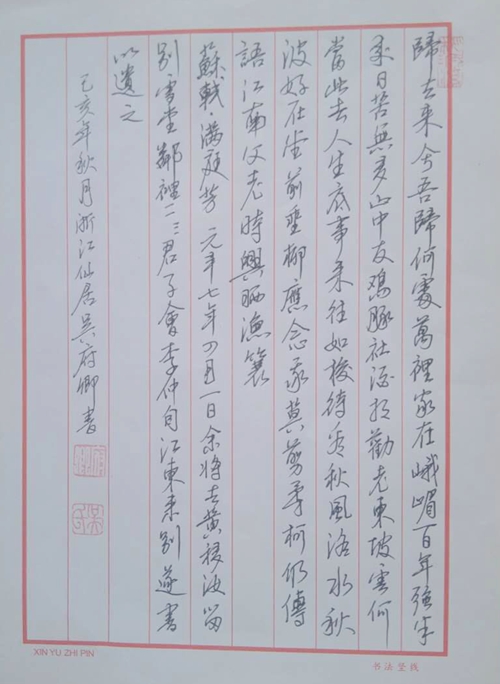 歸去來兮吾歸何處萬裡家在峨嵋百年強半
來日苦無多山中友鷄豚社酒相勸老東坡雲何
當此去人生底事來往如梭待看秋風洛水秋
波好在堂前柳應念我莫剪柔柯仍傳
語江南父老時興晒漁蓑
蘇軾·滿庭芳 元年七年四月一日余將去黃移汝留
別雪堂鄰裡二三君子會李仲自江東來別遂書
以遺之
己亥年秋月浙江仙居吳府卿書
XIN YU ZHI PIN
书法竖线